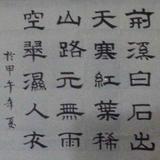 荊溪白石出
天寒紅葉稀
山路元無雨
空翠濕人衣
於甲午年夏